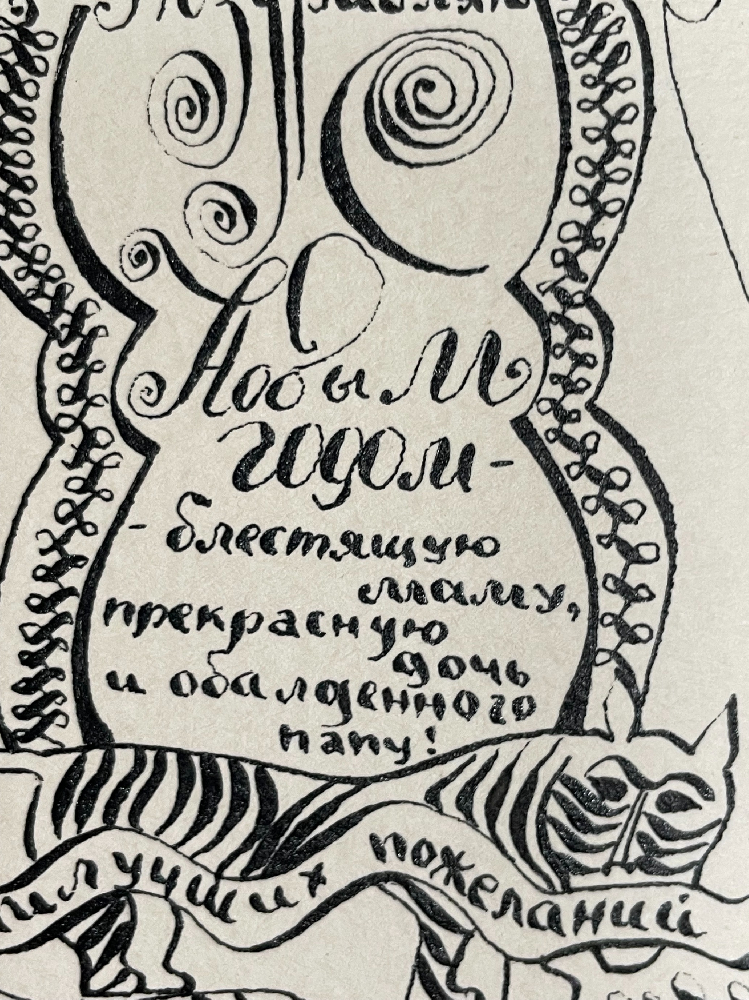 Новым
годом -
- блестящую
маму,
прекрасную
дочь
и обалденного
папу!
илучших пожеланий